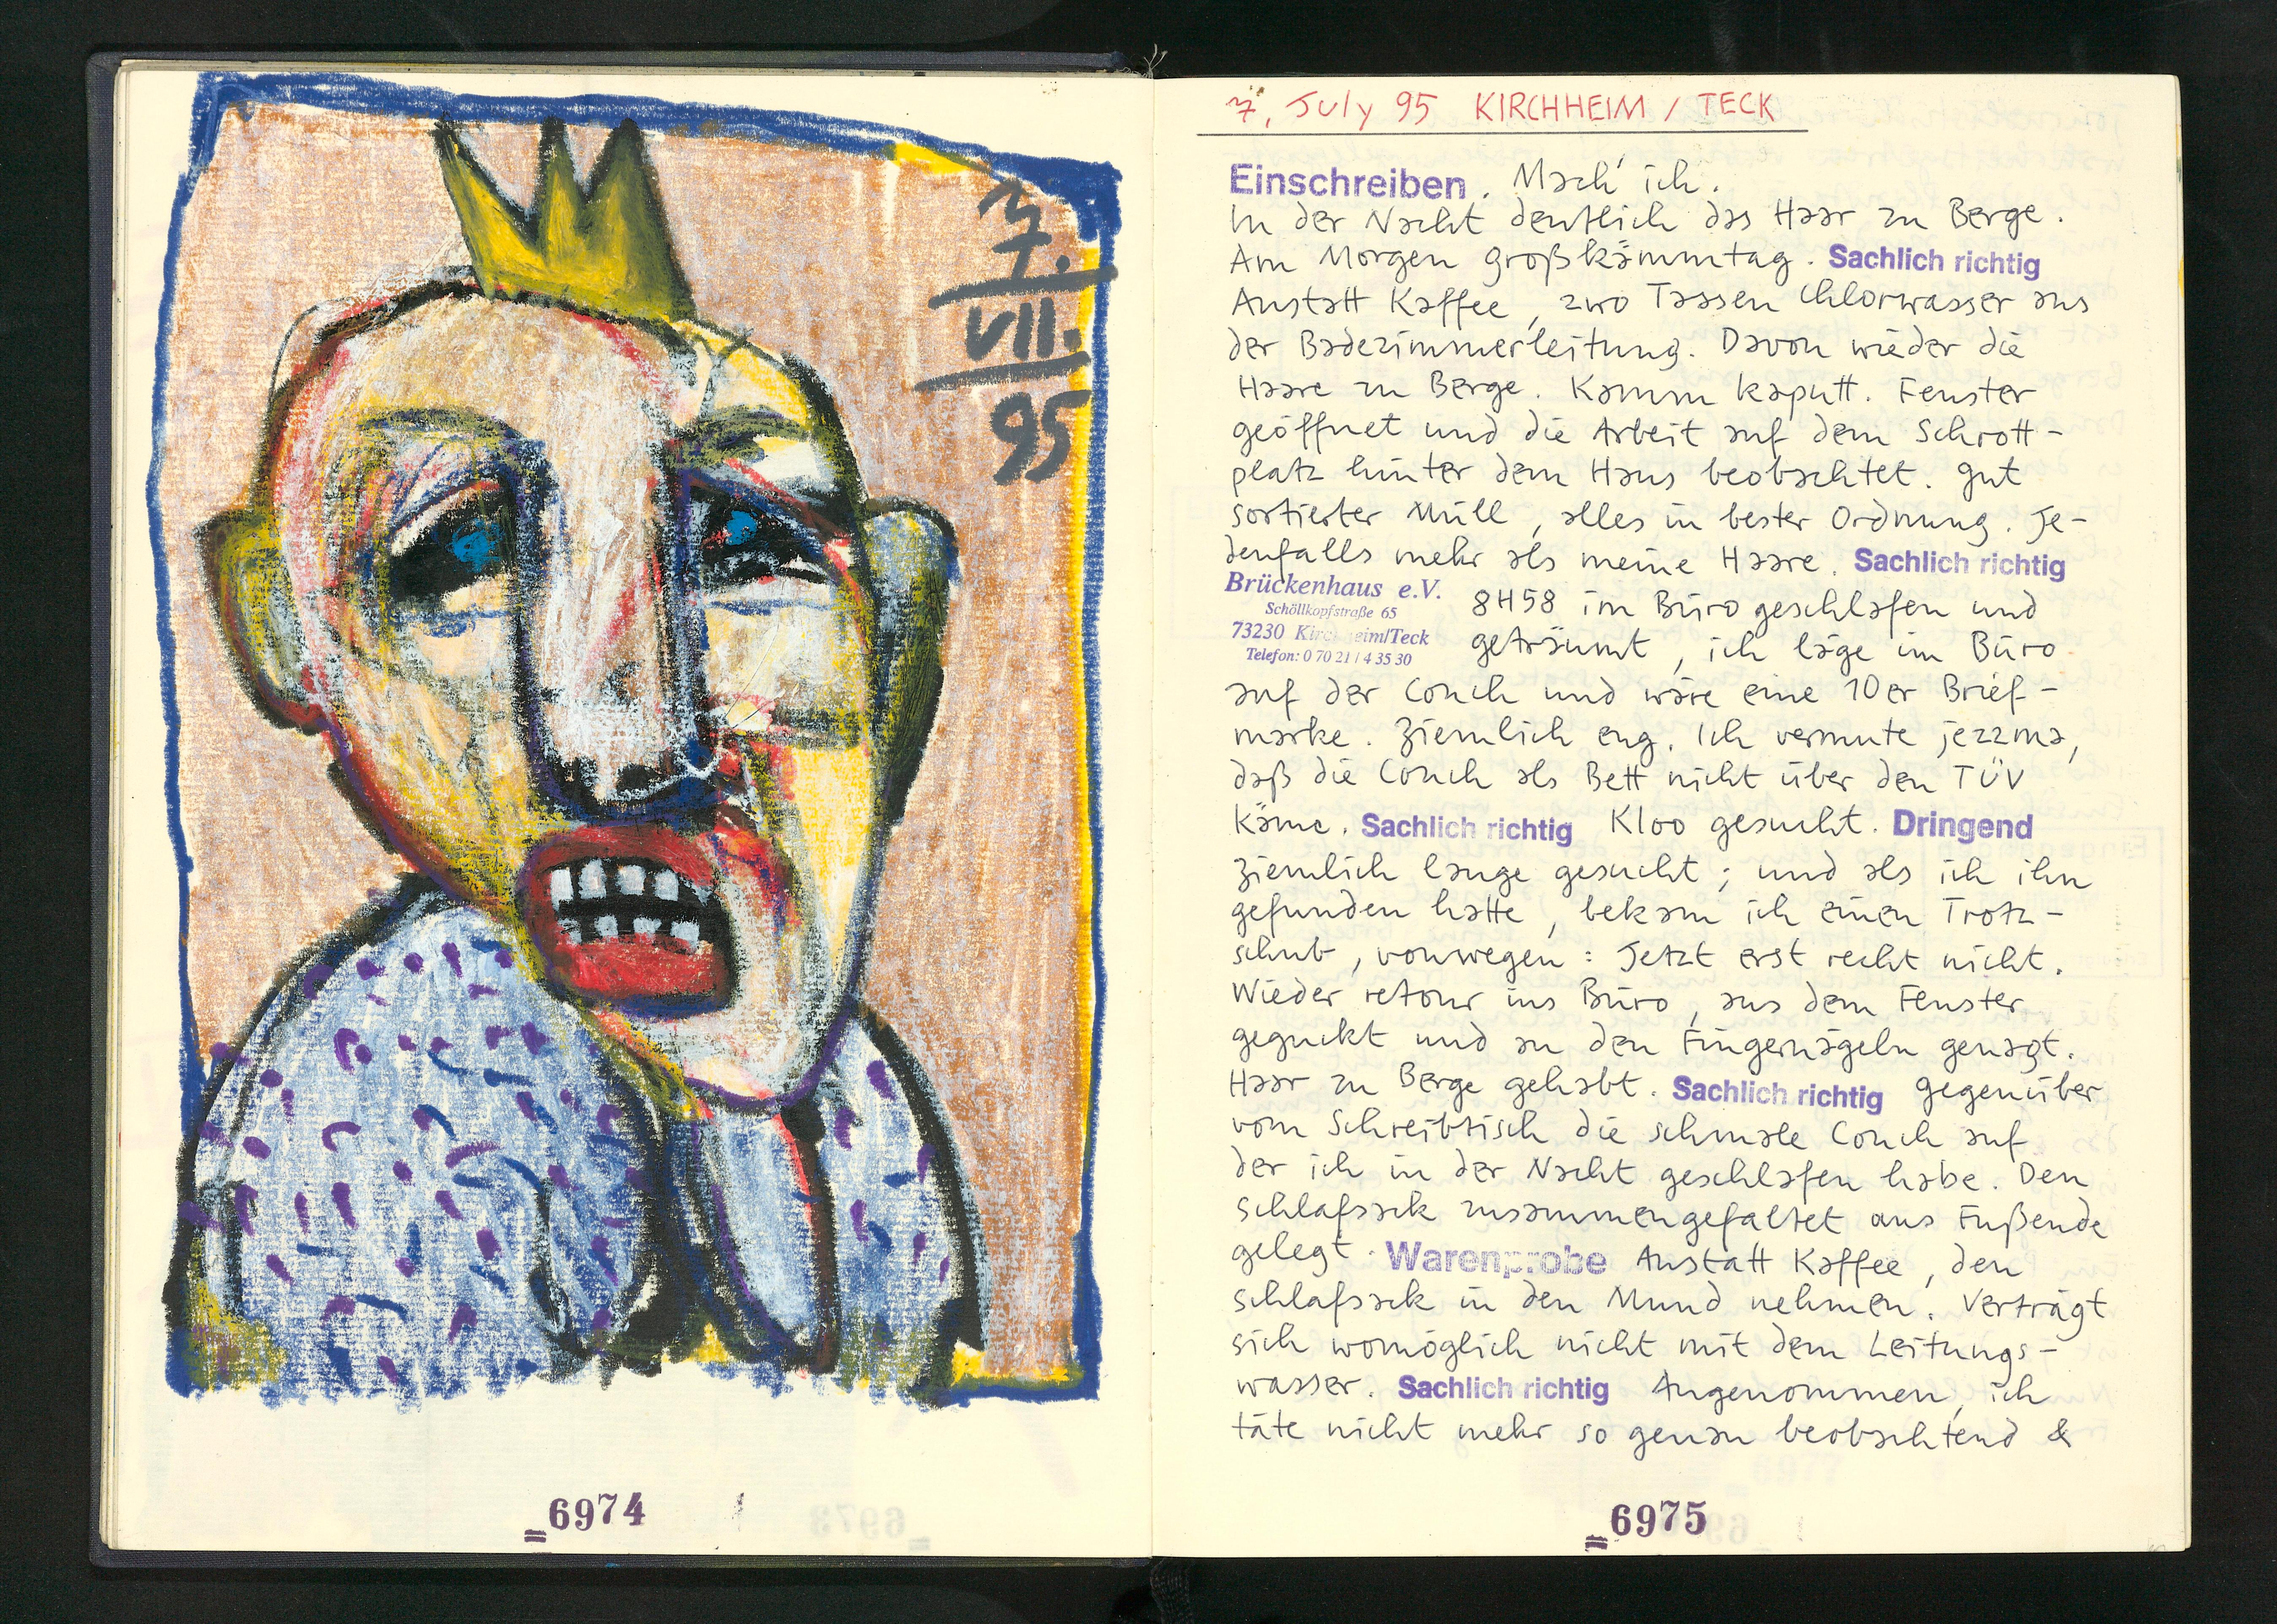 7.
VII.
95
6974
7. July 95 KIRCHHEIM / TECK
Einschreiben. Mach' ich.
In der Nacht deutlich das Haar zu Berge.
Am Morgen großkämmtag. Sachlich richtig
Anstatt Kaffee, zwo Tassen Chlorwasser aus
der Badezimmerleitung. Davon wieder die
Haare zu Berge. Kamm kaputt. Fenster
geöffnet und die Arbeit auf dem Schrott-
platz hinter dem Haus beobachtet. gut
sortierter Müll, alles in bester Ordnung. Je-
denfalls mehr als meine Haare. Sachlich richtig
Brückenhaus e.V.
Schöllkopfstraße 65
73230 Kirchheim/Teck
Telefon: 0 70 21 / 4 35 30
8H58 im Büro geschlafen und
geträumt, ich läge im Büro
auf der Couch und wäre eine 10er Brief-
marke. Ziemlich eng. Ich vermute jezzma,
daß die Couch als Bett nicht über den TÜV
käme. Sachlich richtig Kloo gesucht. Dringend
Ziemlich lange gesucht; und als ich ihn
gefunden hatte, bekam ich einen Trotz-
schub, vonwegen: Jetzt erst recht nicht.
Wieder retour ins Büro, aus dem Fenster
geguckt und an den Fingernägeln genagt.
Haar zu Berge gehabt. Sachlich richtig gegenüber
vom Schreibtisch die schmale Couch auf
der ich in der Nacht geschlafen habe. Den
Schlafsack zusammengefaltet ans Fußende
gelegt. Warenprobe Anstatt Kaffee, den
Schlafsack in den Mund nehmen. Verträgt
sich womöglich nicht mit dem Leitungs-
wasser. Sachlich richtig Angenommen, ich
täte nicht mehr so genau beobachtend &
6975